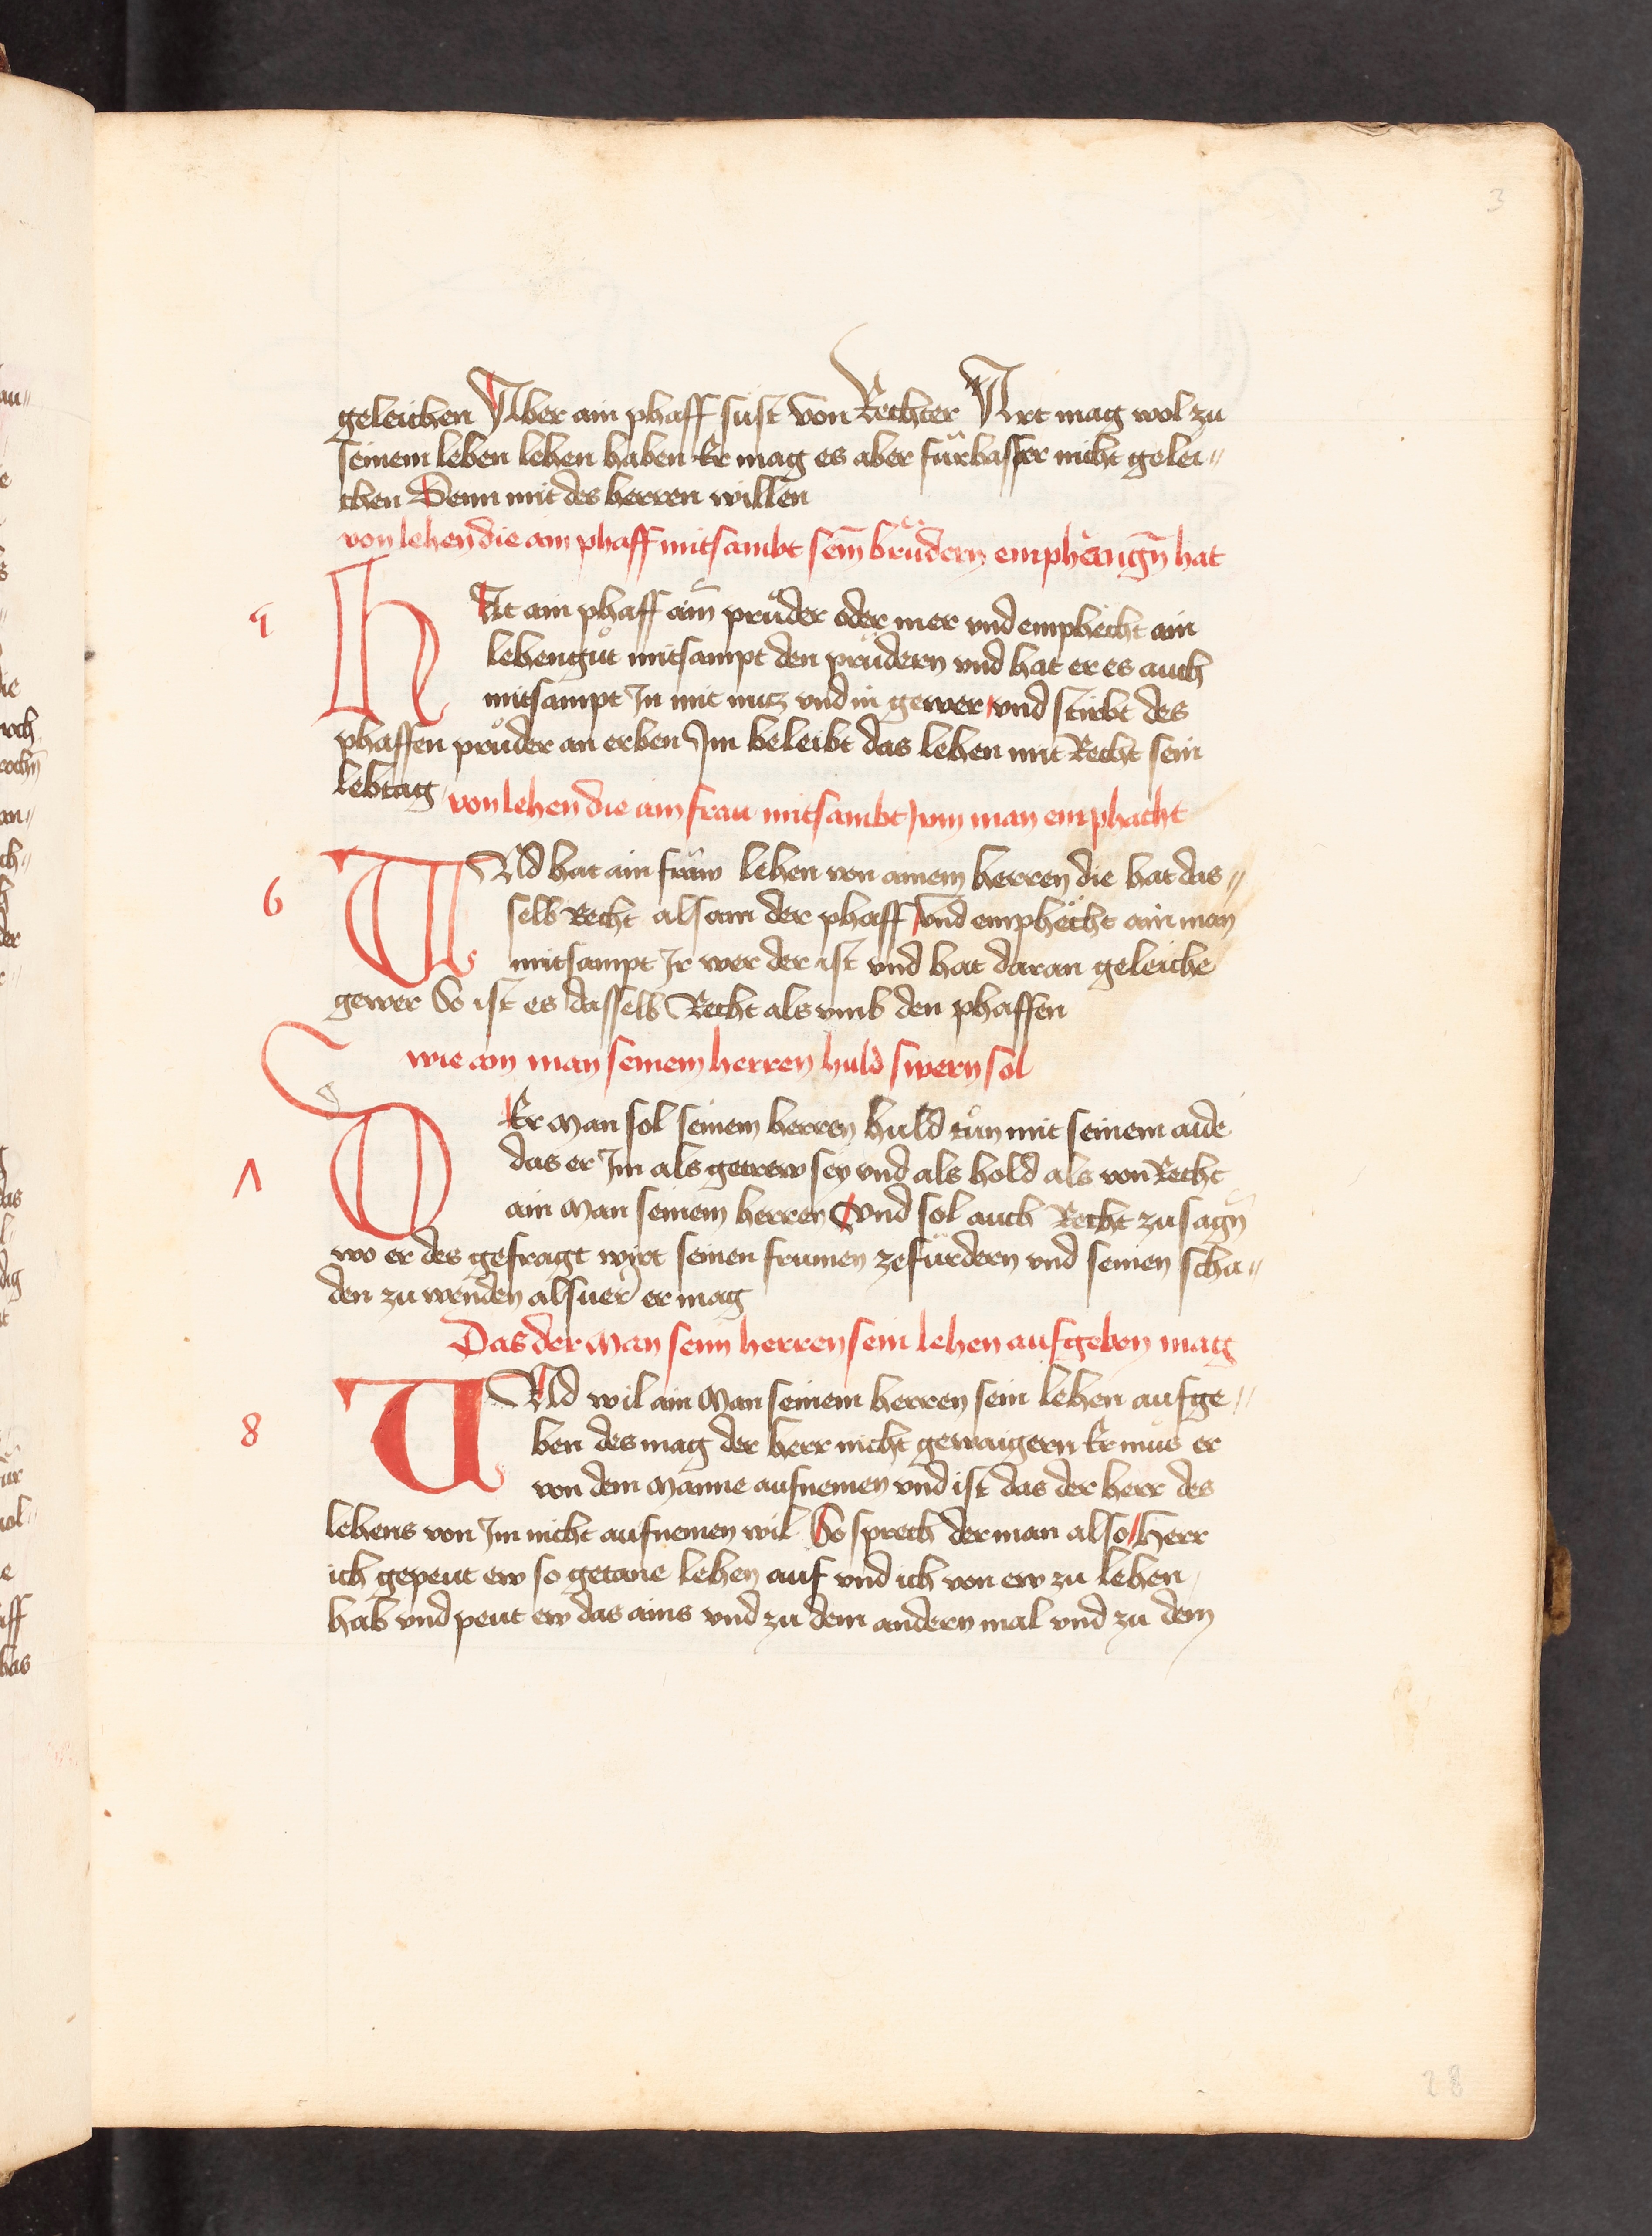 3
geleichen Aber ain phaff sust von Rechter Art mag wol zu
seinem leben lehen haben Er mag es aber fürbasser nicht gelei〃
chen Denn mit des herren willen
von lehen die ain phaff mitsambt sein̄ brüdern emphangn̄ hat
5
HAt ain phaff ain̄ průder oder mer vnd emphecht ain
lehengůt mitsampt den prüdern vnd hat er es auch
mitsampt Jn mit nutz vnd in gewer vnd stirbt des
phaffen průder an erben Jm beleibt das lehen mit Recht sein
lebtag
von lehen die ain frau mitsambt jrm man emphacht
6
VNd hat ain fraw lehen von ainem herren die hat das〃
selb Recht alsam der phaff vnd emphecht ain man
mitsampt Jr wer der ist vnd hat daran geleiche
gewer So ist es dasselb Recht als vmb den phaffen
wie ain man seinem herren huld swern sol
7
DEr Man sol seinem herren huld tůn mit seinem aide
das er Jm als getrew sey vnd als hold als von Recht
ain Man seinem herren Vnd sol auch Recht zu sagn̄
wo er des gefragt wirt seinen frumen ze fürdern vnd seinen scha〃
den zu wenden als uer er mag
Das der Man seim herren sein lehen aufgeben mag
8
VNd wil ain Man seinem herren sein lehen aufge〃
ben des mag der herr nicht gewaigern Er můs er
von dem Manne aufnemen vnd ist das der herr des
lehens von Jm nicht aufnemen wil So sprech der man also Herr
ich gepeut ew so getane lehen auf vnd ich von ew zu lehen
hab vnd peut ew das ains vnd zu dem andern mal vnd zu dem
28